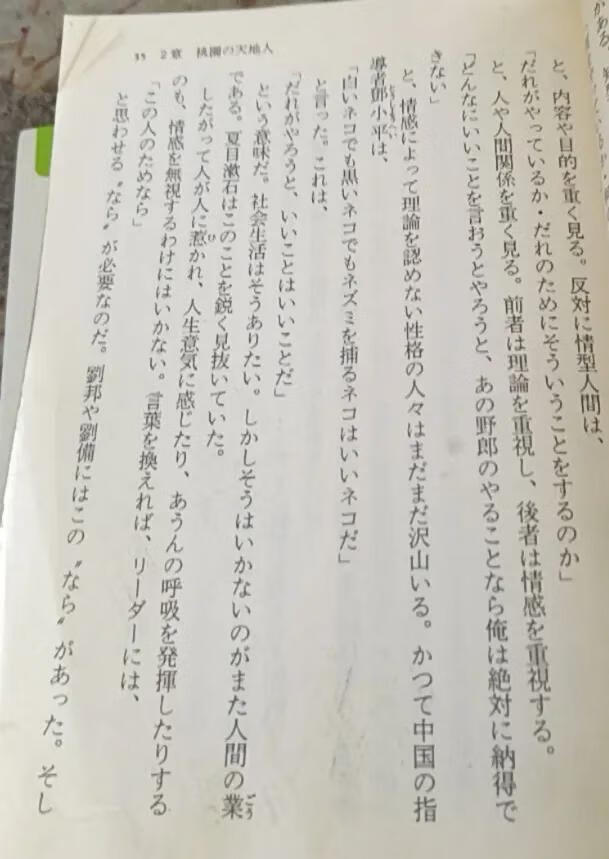 35 2章 桃園の天地人
と、内容や目的を重く見る。反対に情型人間は、
「だれがやっているか・だれのためにそういうことをするのか」
と、人や人間関係を重く見る。前者は理論を重視し、後者は情感を重視する。
「どんなにいいことを言おうとやろうと、あの野郎のやることなら俺は絶対に納得で
きない」
と、情感によって理論を認めない性格の人々はまだまだ沢山いる。かつて中国の指
導者鄧小平は、
とうしょうへい
「白いネコでも黒いネコでもネズミを捕るネコはいいネコだ」
と言った。これは、
「だれがやろうと、いいことはいいことだ」
という意味だ。社会生活はそうありたい。しかしそうはいかないのがまた人間の業
ごう
である。夏目漱石はこのことを鋭く見抜いていた。
したがって人が人に惹かれ、人生意気に感じたり、あうんの呼吸を発揮したりする
ひ
のも、情感を無視するわけにはいかない。言葉を換えれば、リーダーには、
「この人のためなら」
と思わせる〝なら〟が必要なのだ。劉邦や劉備にはこの〝なら〟があった。そし